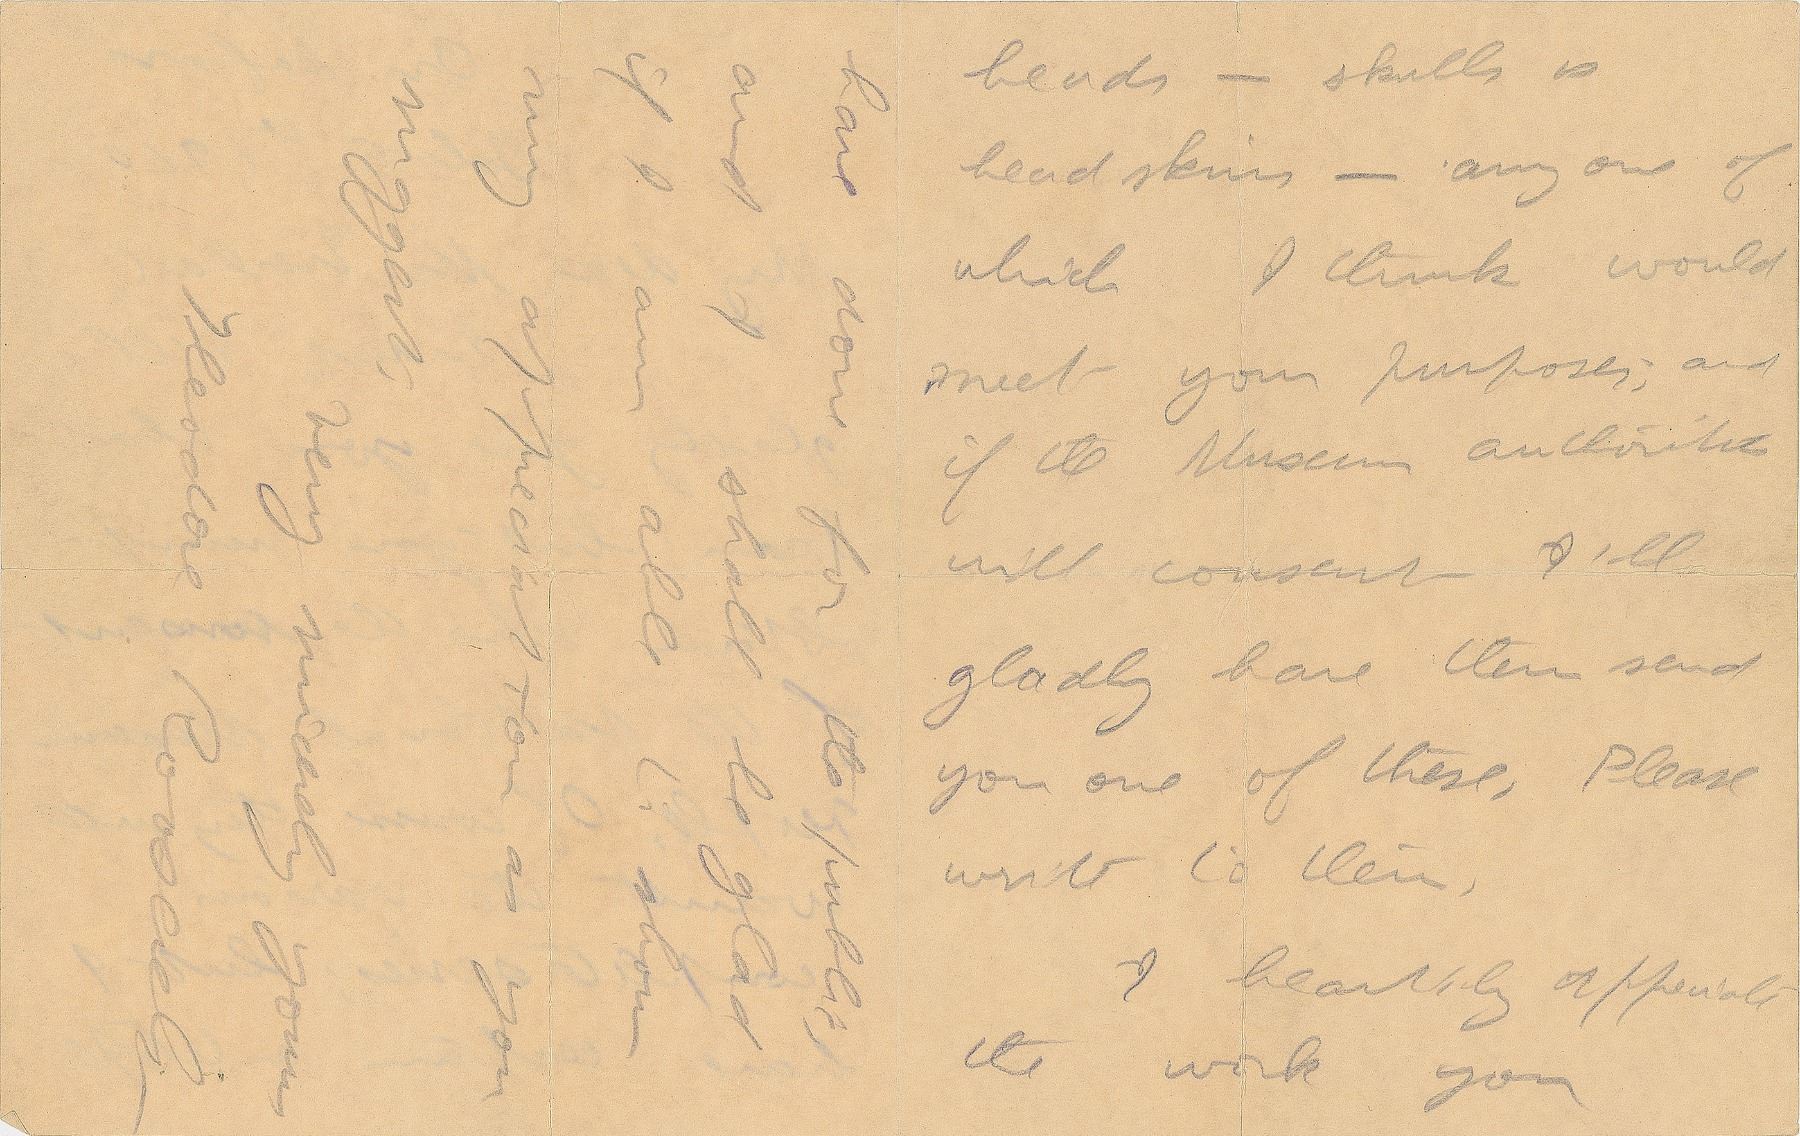 heads — skulls &
head skins — any one of
which I think would
meet your purposes; and
if the Museum authorities
will consent I'll
gladly have them send
you one of these. Please
write to them.
I heartily appreciate
the work you
have done for the public,
and I shall be glad
if I am able to show
my appreciation as you
suggest.
Very sincerely yours
Theodore Roosevelt